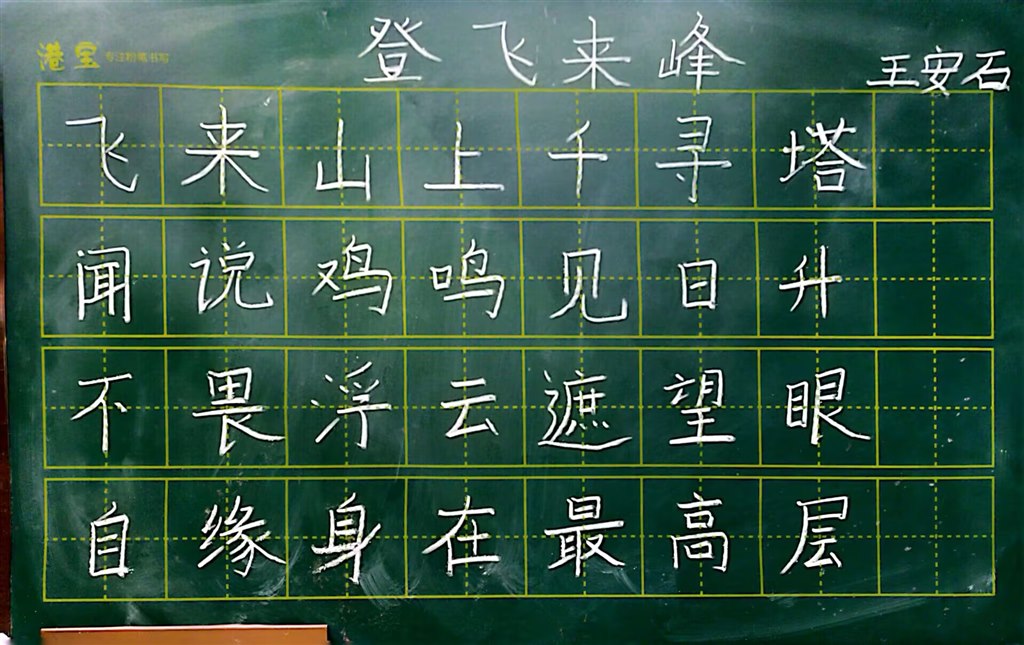 登飞来峰
港宝 专注粉笔书写
王安石
飞来山上千寻塔
闻说鸡鸣见日升
不畏浮云遮望眼
自缘身在最高层